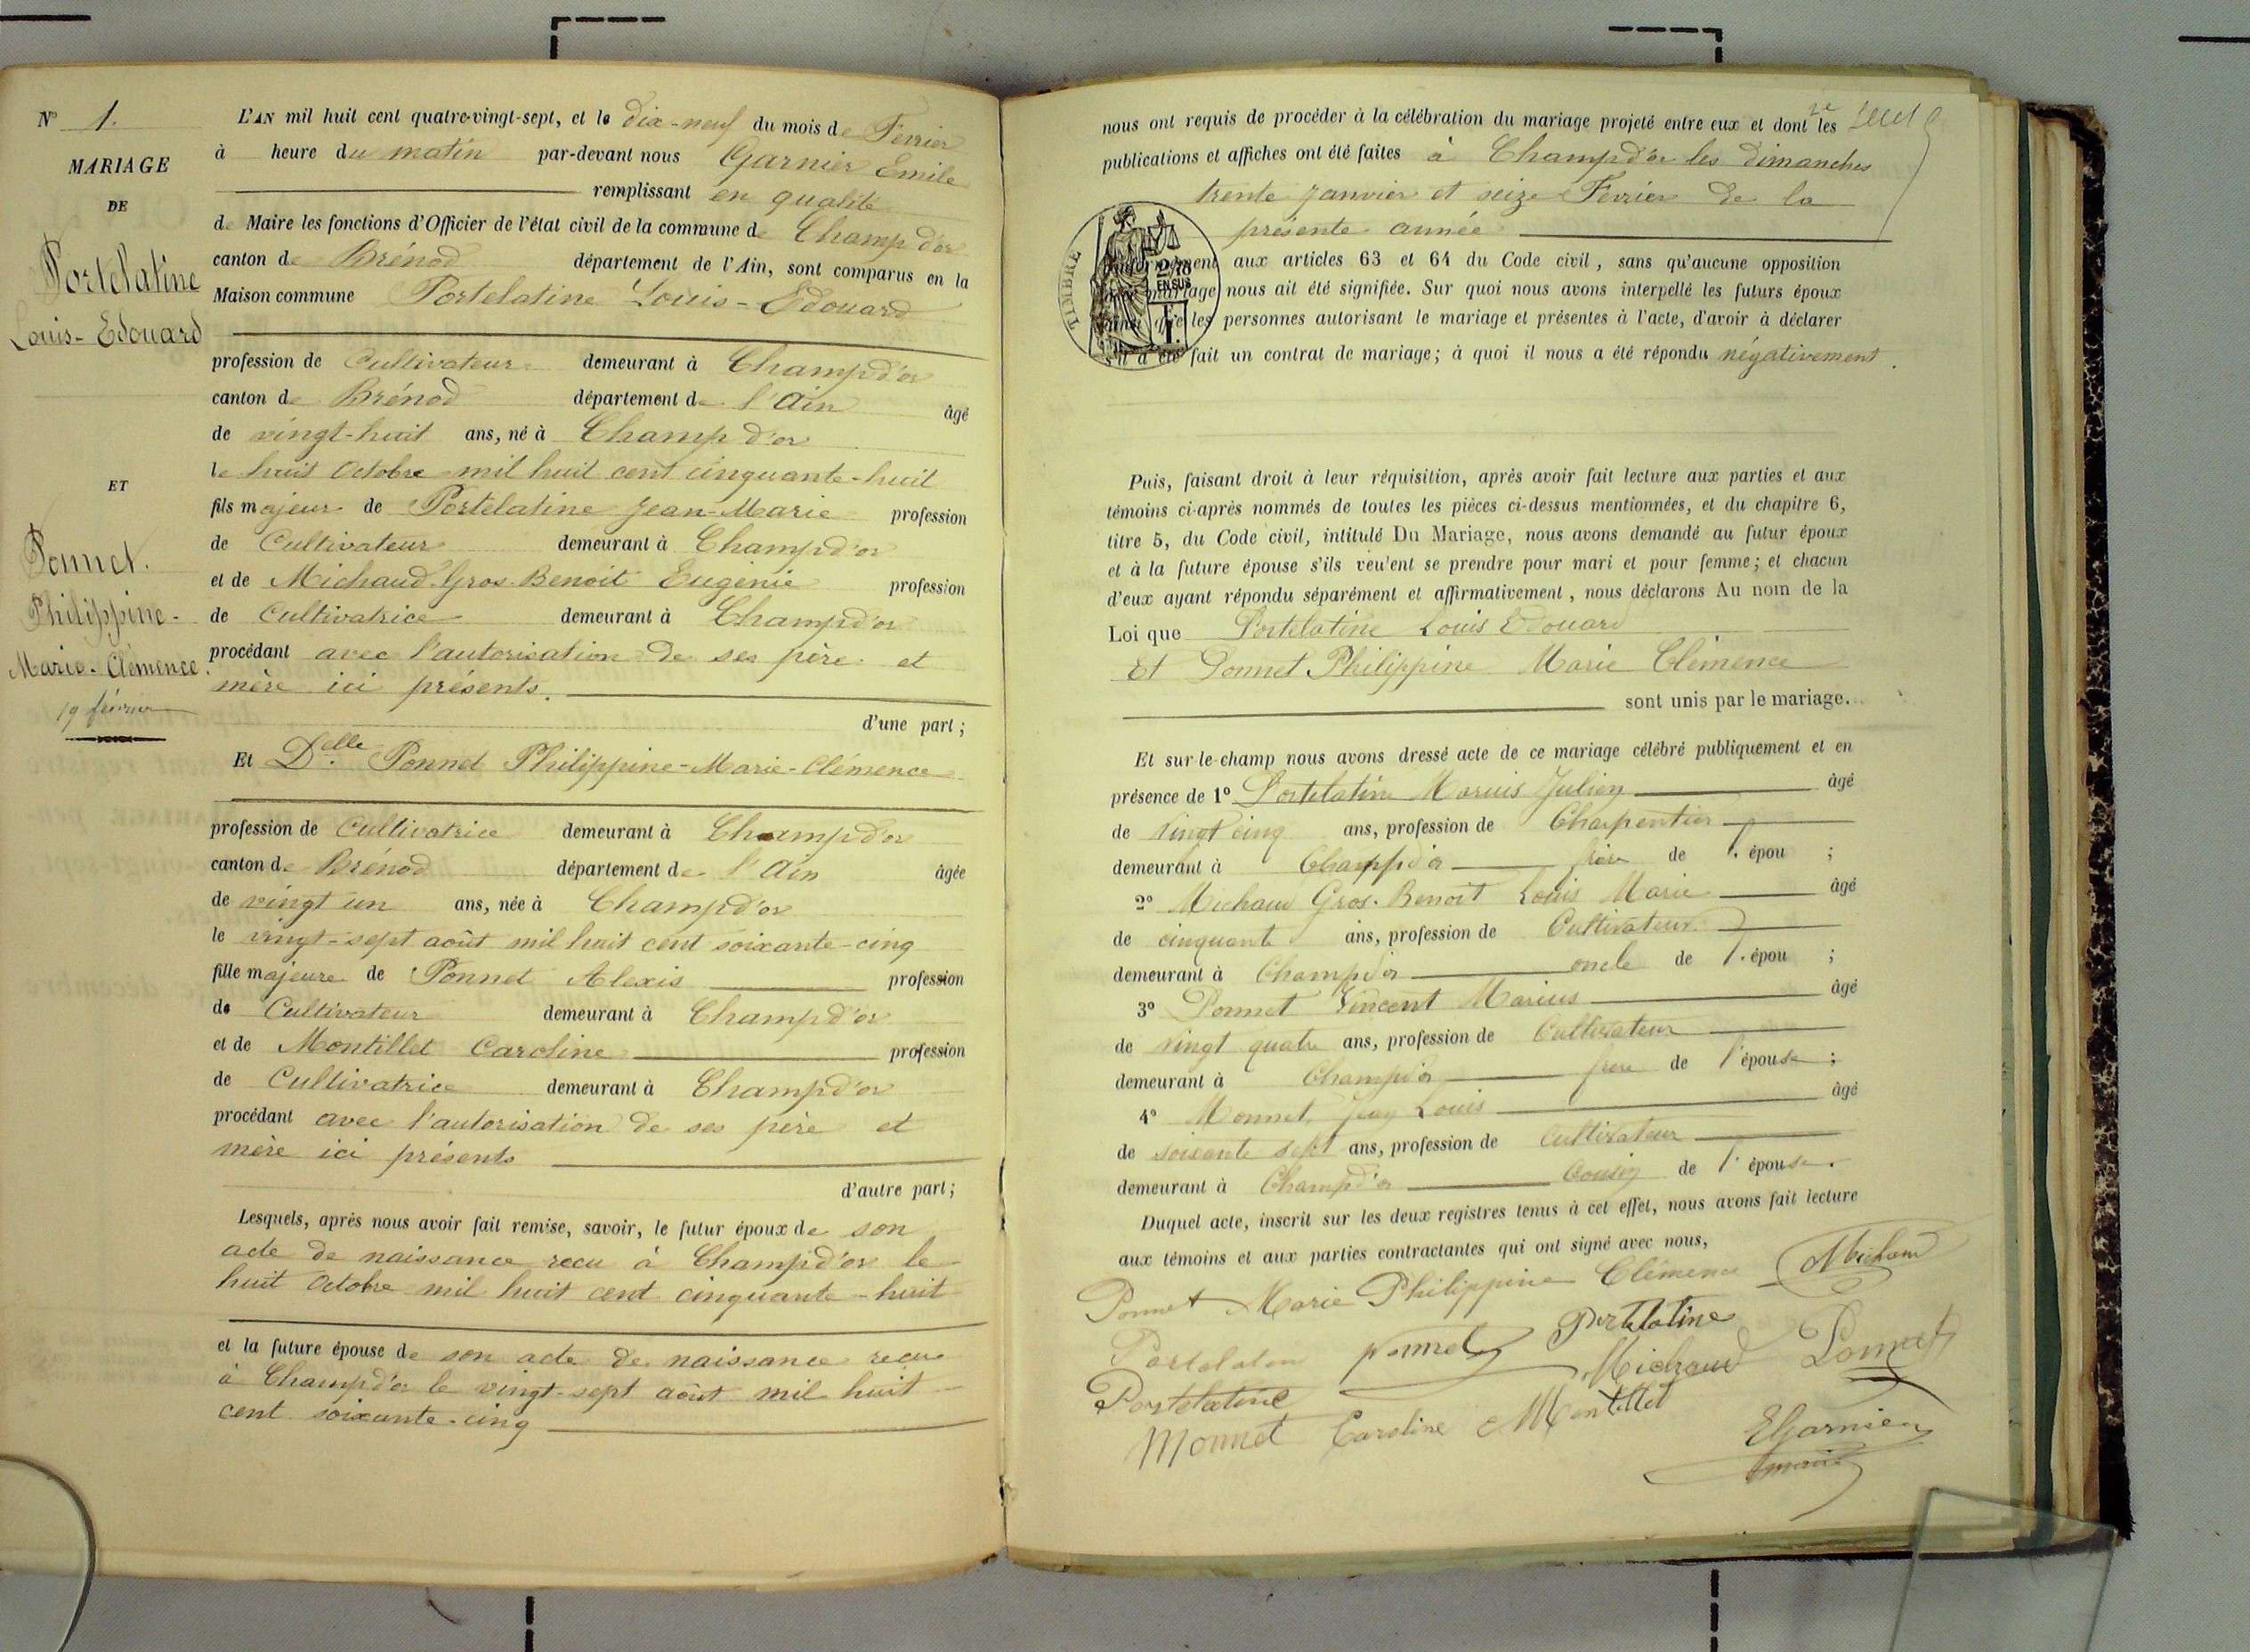 N° 1.
MARIAGE
DE
Portelatine
Louis-Edouard
ET
Ponnet.
Philippine-
Marie-Clémence.
19 février
L'AN mil huit cent quatre-vingt-sept, et le dix-neuf du mois de Fevrier
à heure du matin par-devant nous Garnier Emile
remplissant en qualité
de Maire les fonctions d'Officier de l'état civil de la commune de Champd'or
canton de Brénod département de l'Ain, sont comparus en la
Maison commune Portelatine Louis-Edouard
profession de Cultivateur demeurant à Champd'or
canton de Brénod département de l'Ain âgé
de vingt-huit ans, né à Champd'or
le huit Octobre mil huit cent cinquante-huit
fils majeur de Portelatine Jean-Marie profession
de Cultivateur demeurant à Champd'or
et de Michaud-Gros-Benoit Eugénie profession
de Cultivatrice demeurant à Champd'or
procédant avec l'autorisation de ses père et
mère ici présents.
d'une part;
Et Delle Ponnet Philippine-Marie-Clémence
profession de Cultivatrice demeurant à Champd'or
canton de Brénod département de l'Ain âgée
de vingt un ans, née à Champd'or
le vingt-sept août mil huit cent soixante-cinq
fille majeure de Ponnet Alexis profession
de Cultivateur demeurant à Champd'or
et de Montillet Caroline profession
de Cultivatrice demeurant à Champd'or
procédant avec l'autorisation de ses père et
mère ici présents
d'autre part;
Lesquels, après nous avoir fait remise, savoir, le futur époux de son
acte de naissance reçu à Champd'or le
huit Octobre mil huit cent cinquante-huit
et la future épouse de son acte de naissance reçu
à Champd'or le vingt-sept août mil huit
cent soixante-cinq
nous ont requis de procéder à la célébration du mariage projeté entre eux et dont les
publications et affiches ont été faites à Champd'or les dimanches
trente Janvier et seize Fevrier de la
présente année
TIMBRE
2/10 EN SUS
aux articles 63 et 64 du Code civil, sans qu'aucune opposition
mariage nous ait été signifiée. Sur quoi nous avons interpellé les futurs époux
que les personnes autorisant le mariage et présentes à l'acte, d'avoir à déclarer
s'il a été fait un contrat de mariage; à quoi il nous a été répondu négativement.
Puis, faisant droit à leur réquisition, après avoir fait lecture aux parties et aux
témoins ci-après nommés de toutes les pièces ci-dessus mentionnées, et du chapitre 6,
titre 5, du Code civil, intitulé Du Mariage, nous avons demandé au futur époux
et à la future épouse s'ils veu'ent se prendre pour mari et pour femme; et chacun
d'eux ayant répondu séparément et affirmativement, nous déclarons Au nom de la
Loi que Portelatine Louis Edouard
Et Ponnet Philippine Marie Clémence
sont unis par le mariage.
Et sur-le-champ nous avons dressé acte de ce mariage célébré publiquement et en
présence de 1° Portelatine Marius Julien âgé
de vingt cinq ans, profession de Charpentier
demeurant à Champd'or frère de l'épou ;
2° Michaud Gros-Benoit Louis Marie âgé
de cinquante ans, profession de Cultivateur
demeurant à Champd'or oncle de l'épou ;
3° Ponnet Vincent Marius âgé
de vingt quatre ans, profession de Cultivateur
demeurant à Champd'or frère de l'épouse ;
4° Monnet Jean Louis âgé
de soixante sept ans, profession de Cultivateur
demeurant à Champd'or Cousin de l'épouse.
Duquel acte, inscrit sur les deux registres tenus à cet effet, nous avons fait lecture
aux témoins et aux parties contractantes qui ont signé avec nous,
Ponnet Marie Philippine Clémence Michaud
Portelatine ponnet Portelatine
Michaud Ponnet
Portelatine
Monnet Caroline Montillet
EGarnier
maire